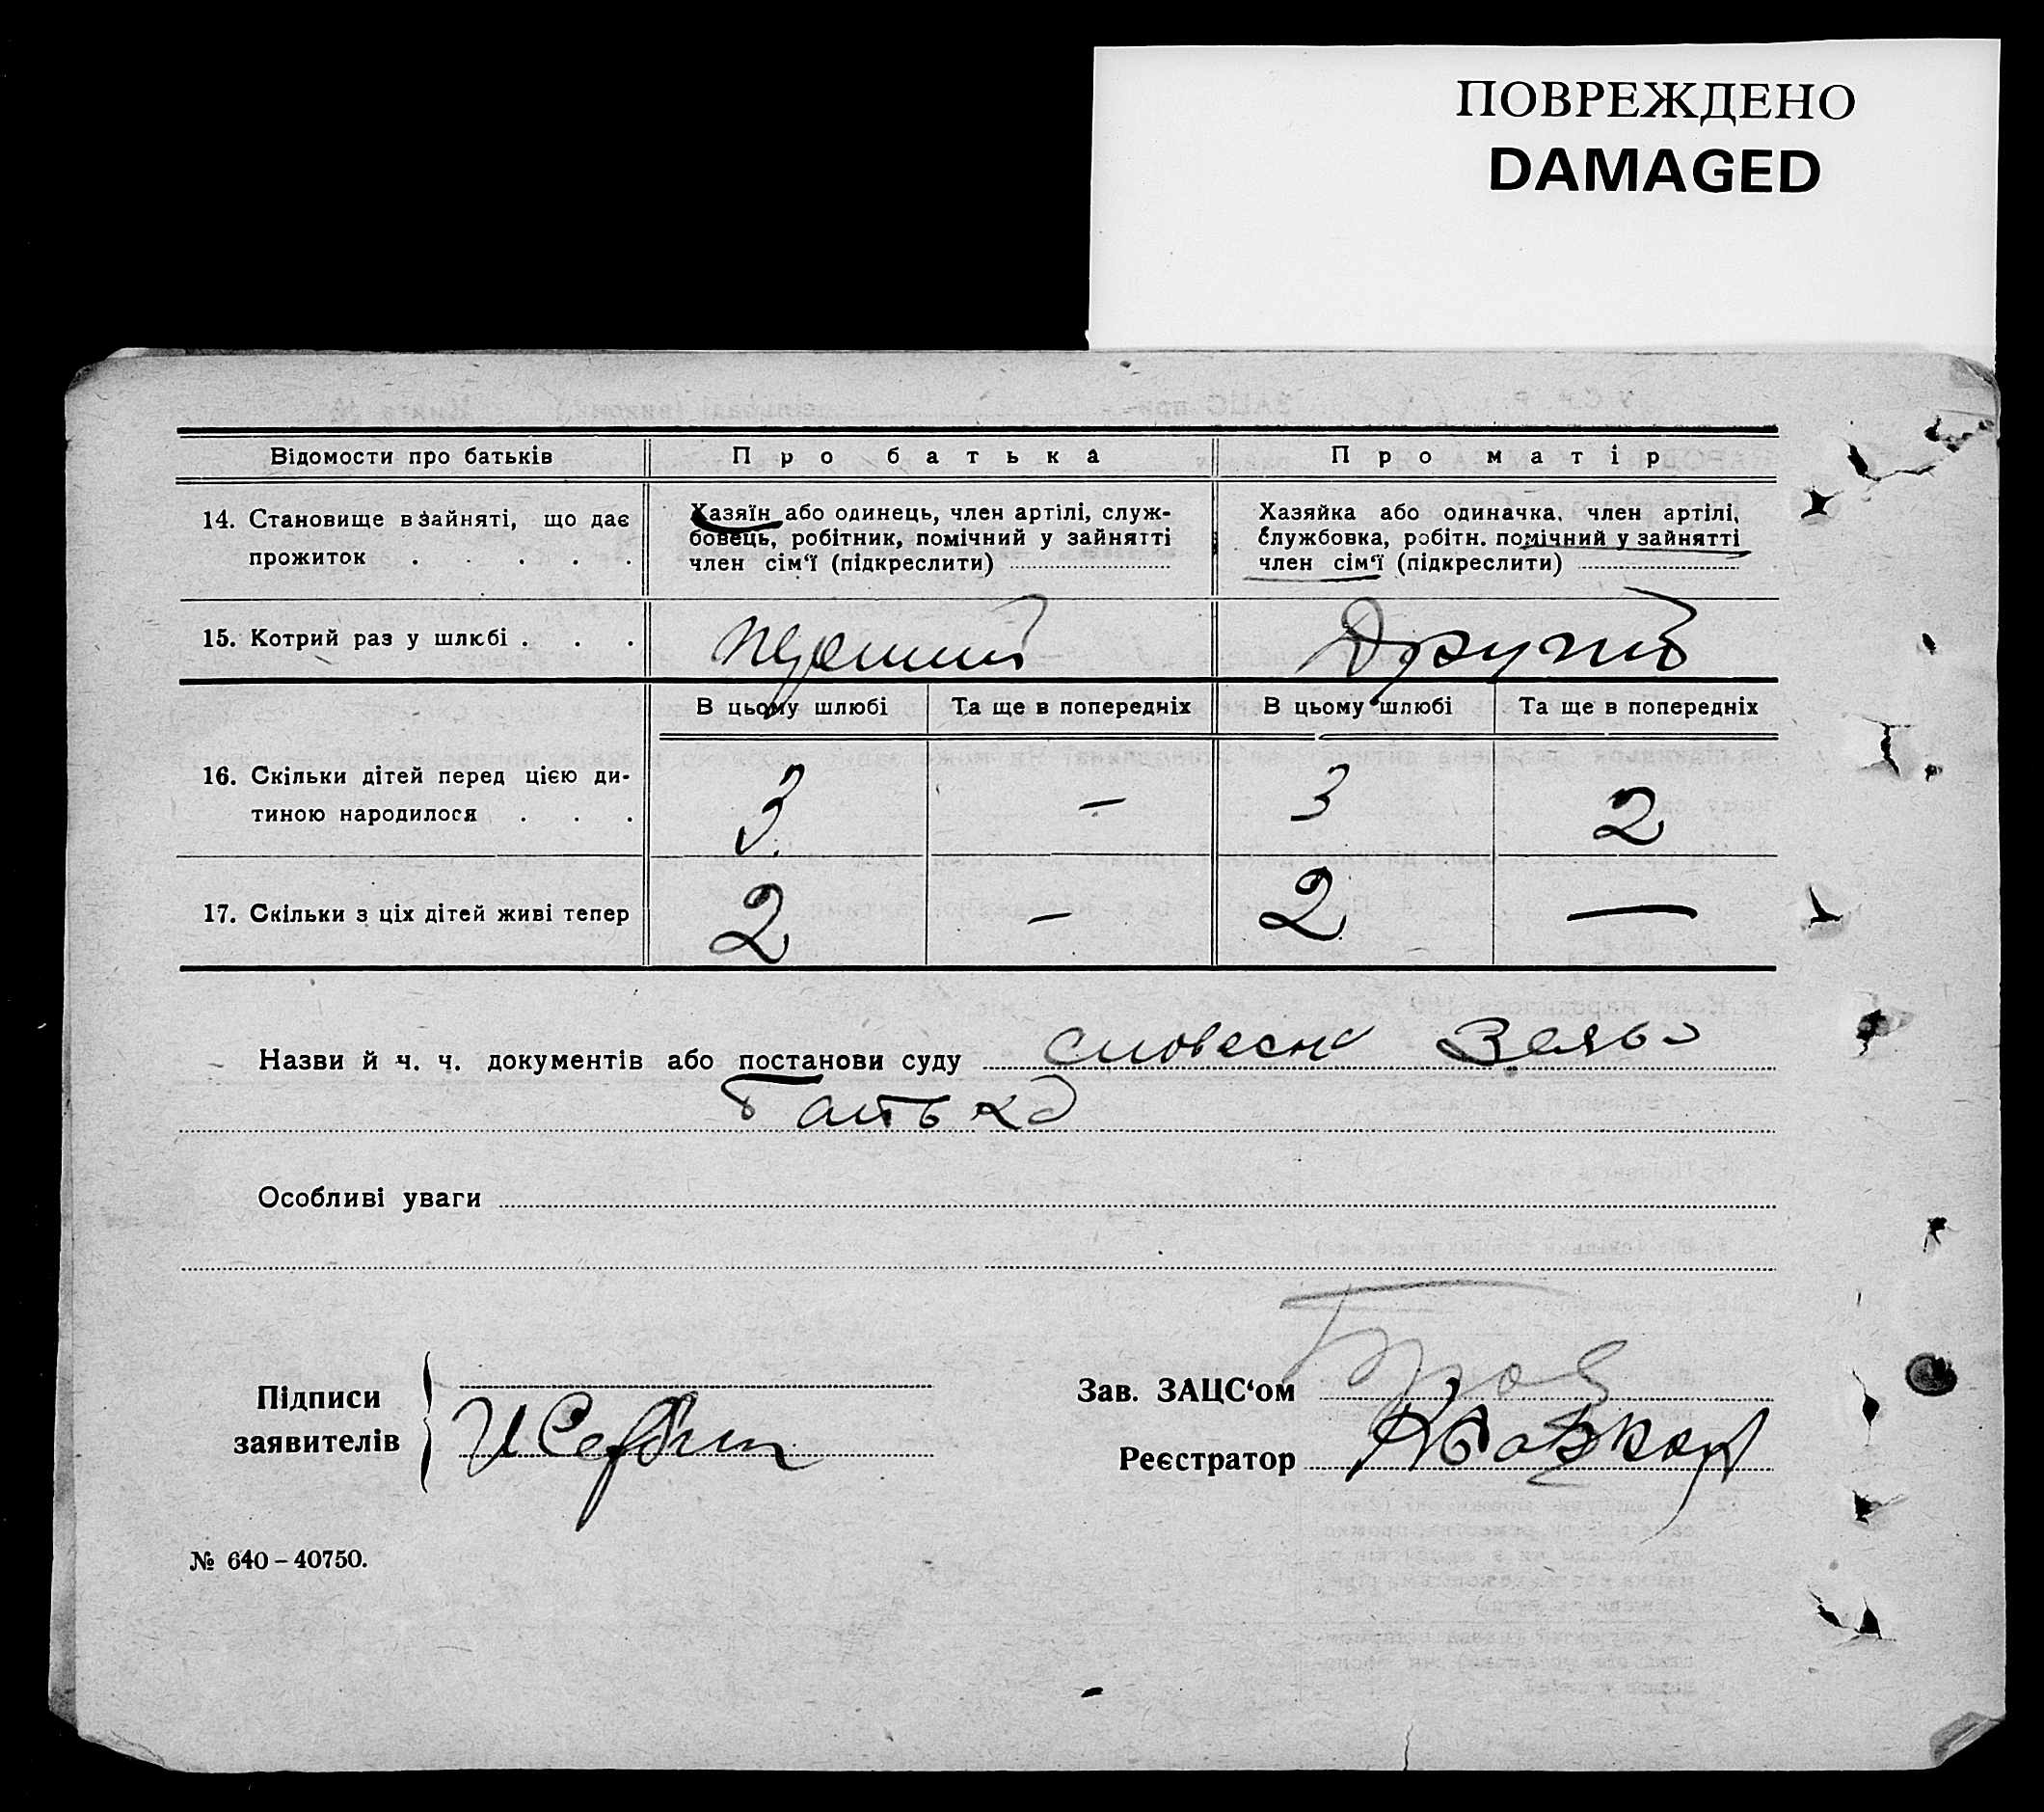 ПОВРЕЖДЕНО
DAMAGED
Відомости про батьків
Про батька
Про матір
14. Становище в зайняті, що дає
прожиток . . . . .
Хазяїн або одинець, член артілі, служ-
бовець, робітник, помічний у зайнятті
член сім‘ї (підкреслити)
Хазяйка або одиначка, член артілі,
службовка, робітн. помічний у зайнятті
член сім‘ї (підкреслити)
15. Котрий раз у шлюбі . . .
Другий
В цьому шлюбі
Та ще в попередніх
В цьому шлюбі
Та ще в попередніх
16. Скільки дітей перед цією ди-
тиною народилося . . .
3 – 3 2
17. Скільки з ціх дітей живі тепер
2 – 2 —
Назви й ч. ч. документів або постанови суду словесна Заява
батька
Особливі уваги
Підписи
заявителів
Зав. ЗАЦС‘ом
Реєстратор
№ 640–40750.